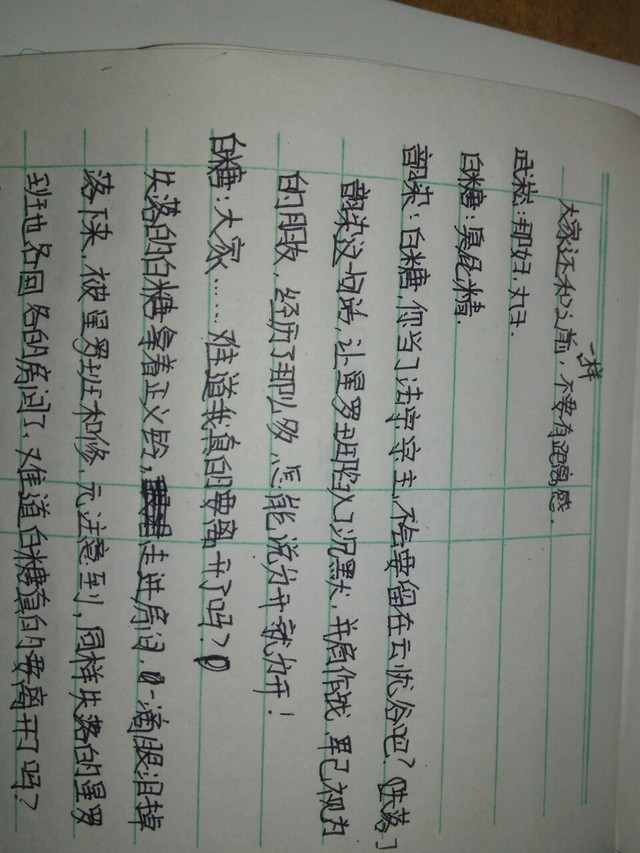 大家还和之前一样，不要有距离感.
武崧：那好，丸子.
白糖：臭屁精.
部染：白糖，你当了法宗宗主，不会要留在云忧谷吧？（失落）
部染这一句话，让星罗班陷入了沉默，并肩作战、早已视为
的朋友，经历了那么多，怎能说分开就分开！
白糖：大家……难道我真的要离开了吗？
失落的白糖拿着正义铃，走进房间，一滴眼泪掉
落下来，被星罗班和修、元注意到，同样失落的星罗
到班也各回各的房间了，难道白糖真的要离开了吗？